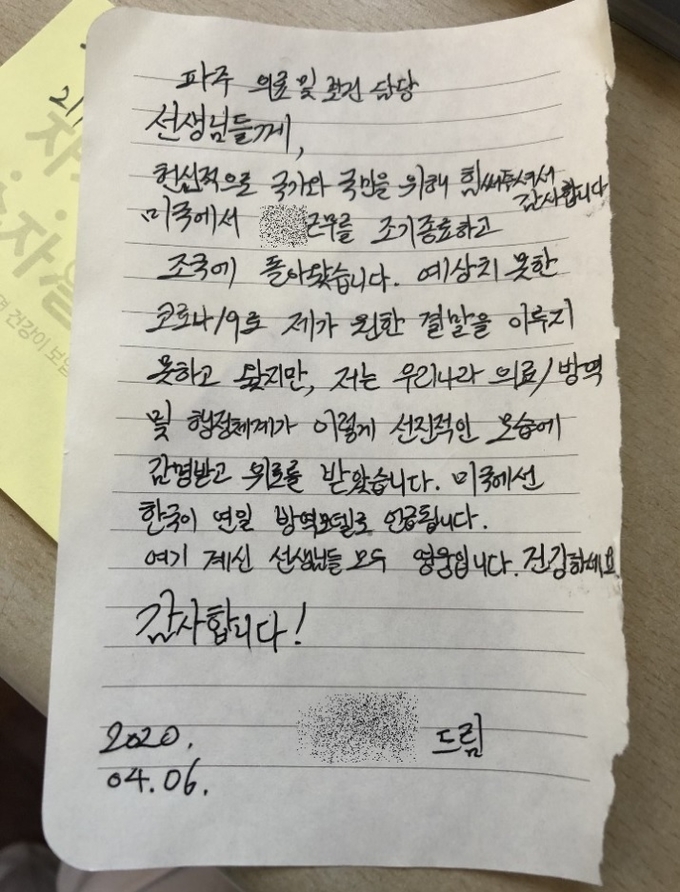 파주 의료 및 보건 담당
선생님들께,
헌신적으로 국가와 국민을 위해 힘써주셔서
감사합니다
미국에서 근무를 조기종료하고
조국에 돌아왔습니다. 예상치 못한
코로나19로 제가 원한 결말을 이루지
못하고 왔지만, 저는 우리나라 의료/방역
및 행정체계가 이렇게 선진적인 모습에
감명받고 위로를 받았습니다. 미국에선
한국이 연일 방역모델로 언급됩니다.
여기 계신 선생님들 모두 영웅입니다. 건강하세요
감사합니다!
2020. 드림
04.06.
건강이 보